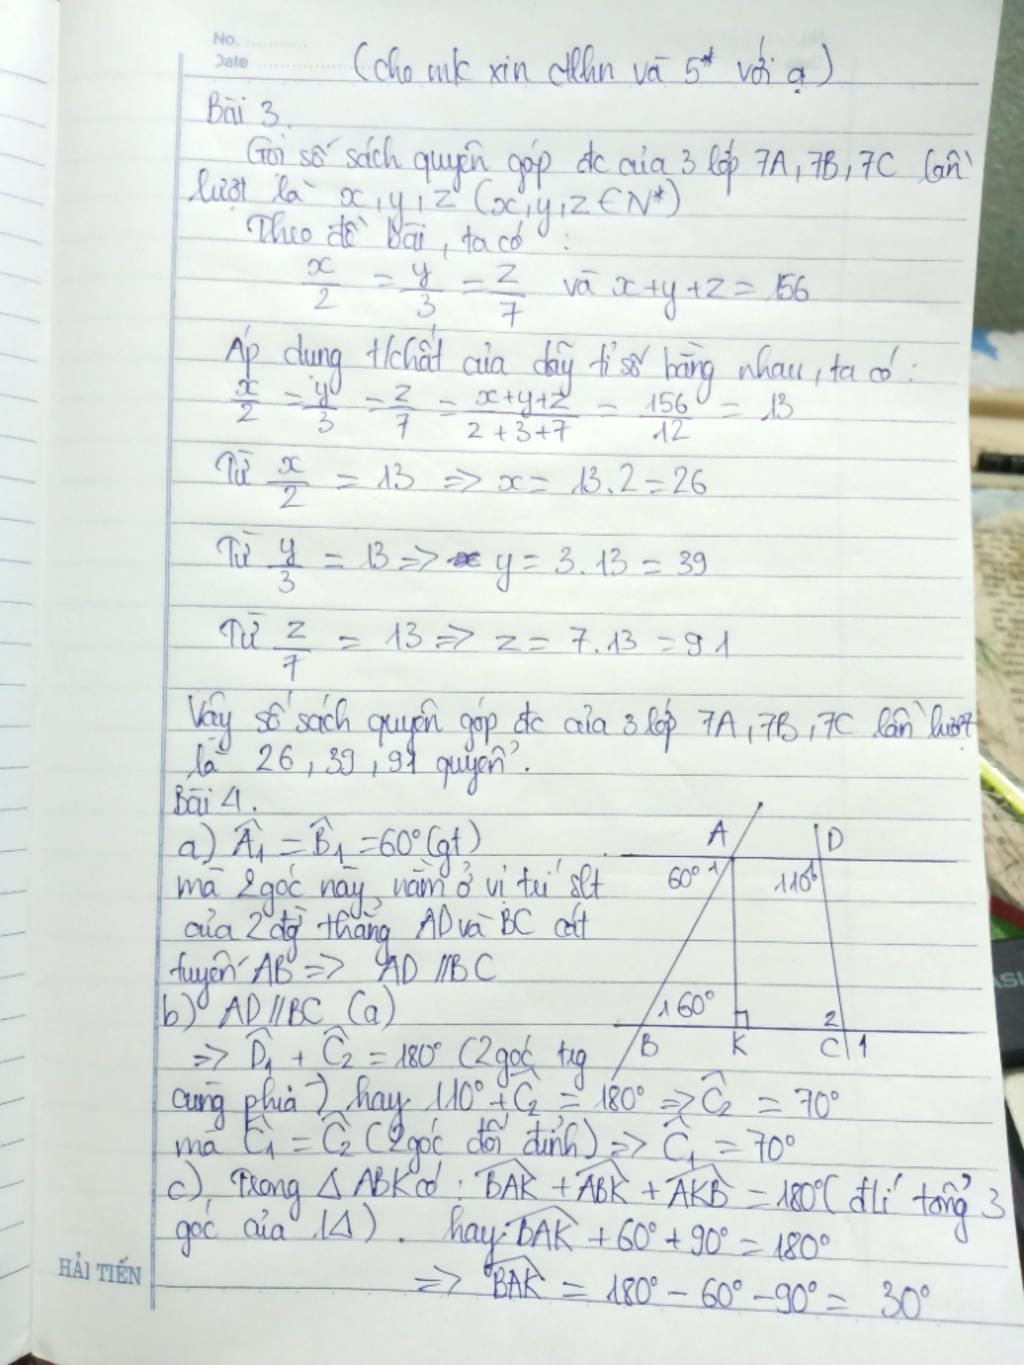 No. ............
Date ............
(cho mk xin ctlhn và 5* với ạ)
Bài 3.
Gọi số sách quyên góp đc của 3 lớp 7A, 7B, 7C lần
lượt là x, y, z (x, y, z ∈ N*)
Theo đề bài, ta có :
x/2 = y/3 = z/7 và x+y+z = 156
Áp dụng t/chất của dãy tỉ số bằng nhau, ta có :
x/2 = y/3 = z/7 = x+y+z/2+3+7 = 156/12 = 13
Từ x/2 = 13 => x = 13.2 = 26
Từ y/3 = 13 => y = 3.13 = 39
Từ z/7 = 13 => z = 7.13 = 91
Vậy số sách quyên góp đc của 3 lớp 7A, 7B, 7C lần lượt
là 26, 39, 91 quyển.
Bài 4.
a) Â1 = B̂1 = 60° (gt)
mà 2 góc này nằm ở vị trí slt
của 2 đg thẳng AD và BC cát
tuyến AB => AD // BC
b) AD // BC (a)
=> D̂1 + Ĉ2 = 180° (2 góc trg
cùng phía) hay 110° + Ĉ2 = 180° => Ĉ2 = 70°
mà Ĉ1 = Ĉ2 (2 góc đối đỉnh) => Ĉ1 = 70°
c) Trong △ ABK có : BAK + ABK + AKB = 180° (đlí tổng 3
góc của 1△). hay BAK + 60° + 90° = 180°
=> BAK = 180° - 60° - 90° = 30°
A D
60° 1 110° 1
1 60° 2
B K C 1
HẢI TIẾN